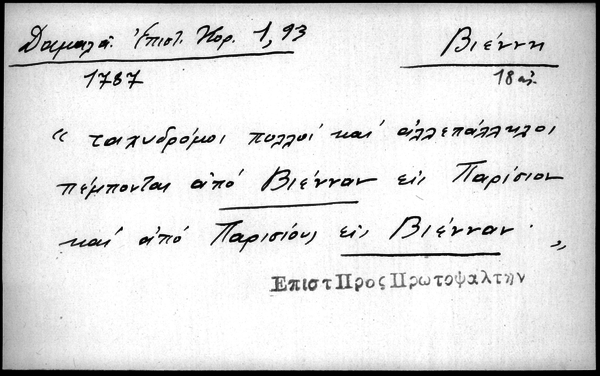 Δαμαλᾶ. Ἐπιστ. Κορ. 1,93
Βιέννη
1787
18 αἰ.
“ ταχυδρόμοι πολλοί καί ἀλλεπάλληλοι
πέμπονται ἀπό Βιένναν εἰς Παρίσιον
καί ἀπό Παρισίους εἰς Βιένναν. „
Επιστ Προς Πρωτοψαλτην